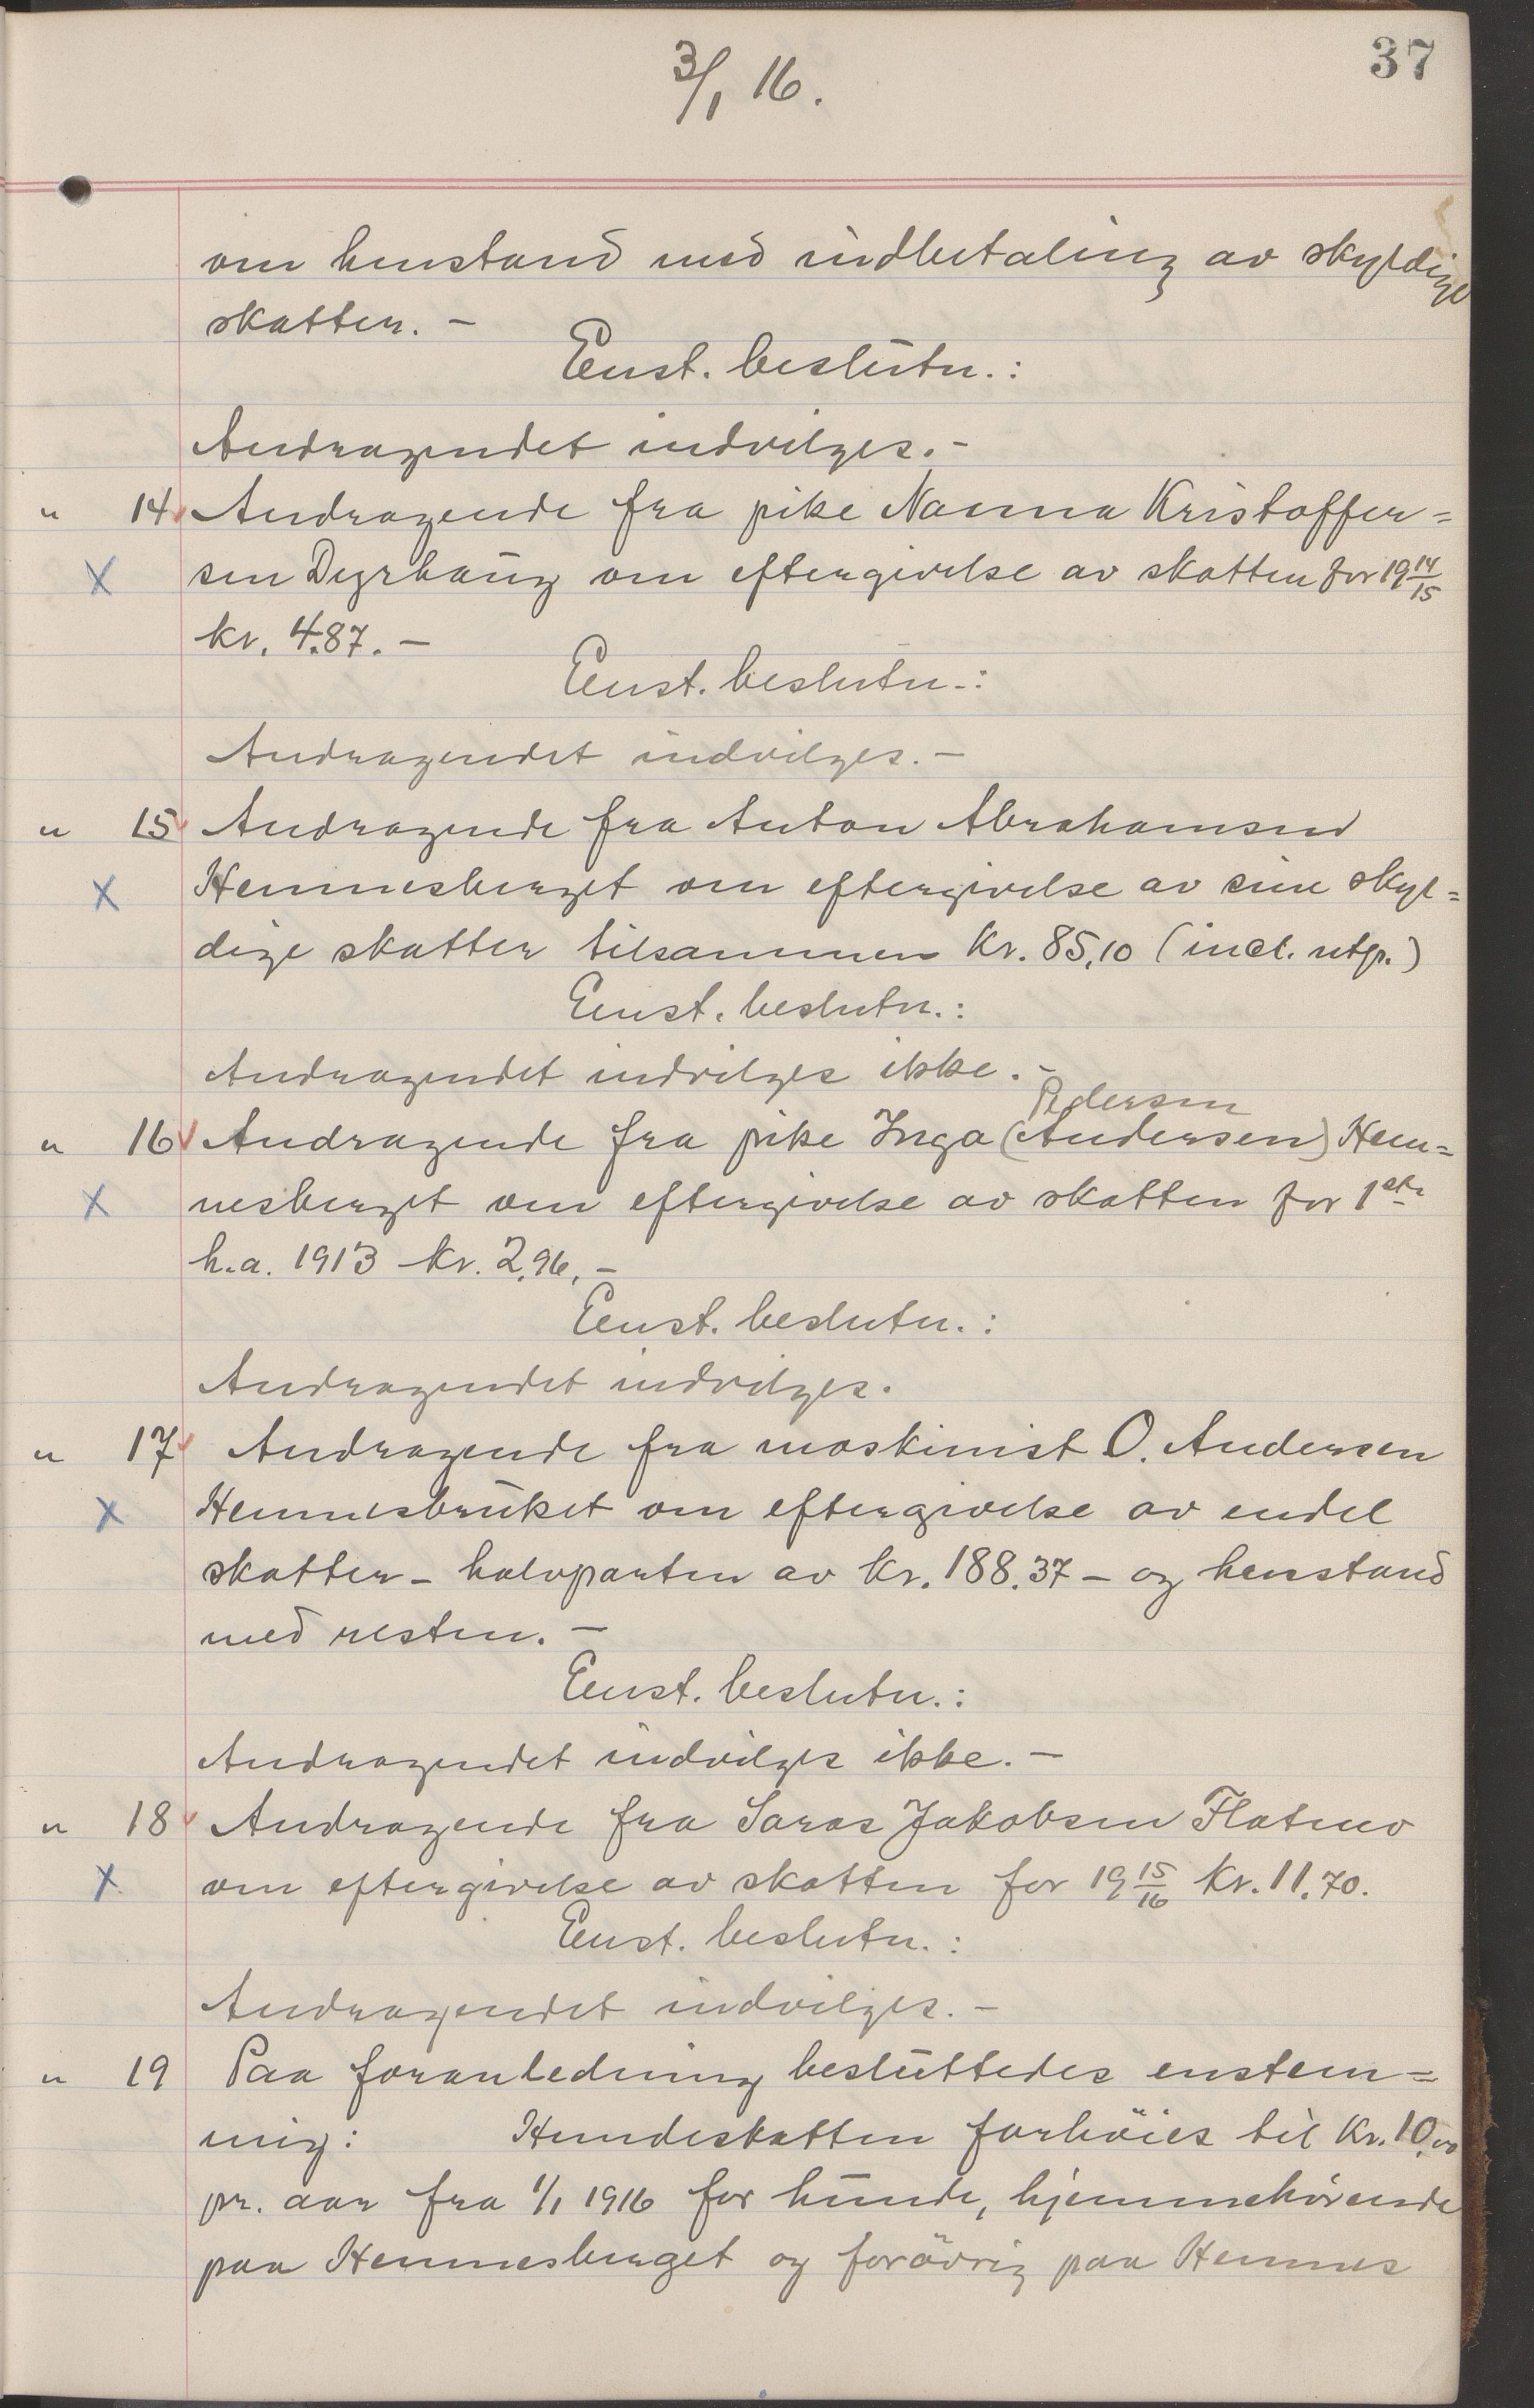 37
3/1 16.
om henstand med indbetaling av skyldige
skatter. -
Enst. beslutn.:
Andragendet indvilges. -
" 14 Andragende fra pike Nanna Kristoffer=
sen Dyrhaug om eftergivelse av skatten for 19 14/15
kr. 4.87. -
Enst. beslutn.:
Andragendet indvilges. -
" 15 Andragende fra Anton Abrahamsen
Hemnesberget om eftergivelse av sine skyl=
dige skatter tilsammen kr. 85,10 (incl. utp.)
Enst. beslutn.:
Andragendet indvilges ikke. -
Pedersen
" 16 Andragende fra pike Inga (Andersen) Hem=
nesberget om eftergivelse av skatten for 1ste
h.a. 1913 kr. 2,96. -
Enst. beslutn.:
Andragendet indvilges.
" 17 Andragende fra maskinist O. Andersen
Hemnesbruket om eftergivelse av endel
skatter - halvparten av kr. 188.37 - og henstand
med resten. -
Enst. beslutn.:
Andragendet indvilges ikke. -
" 18 Andragende fra Saras Jakobsen Flatmo
om eftergivelse av skatten for 19 15/16 kr. 11.70.
Enst. beslutn.:
Andragendet indvilges. -
" 19 Paa foranledning besluttedes enstem=
mig: Hundeskatten forhöies til kr. 10,00
pr. aar fra 1/1 1916 for hunde, hjemmehörende
paa Hemnesberget og forövrig paa Hemnes